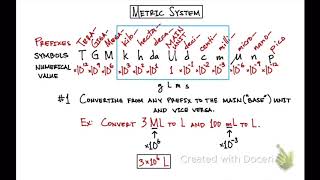 METRIC SYSTEM
PREFIXES TERA- GIGA- MEGA- kilo- hecto- deca- MAIN UNIT deci- centi- milli- micro- nano- pico
SYMBOLS T G M k h da U d c m μ n p
NUMERICAL VALUE ×10¹² ×10⁹ ×10⁶ ×10³ ×10² ×10¹ 1 ×10⁻¹ ×10⁻² ×10⁻³ ×10⁻⁶ ×10⁻⁹ ×10⁻¹²
g L m s
#1 CONVERTING FROM ANY PREFIX TO THE MAIN ("BASE") UNIT
AND VICE VERSA.
Ex: CONVERT 3 ML TO L AND 100 mL TO L.
×10⁶ ×10⁻³
3×10⁶ L
Created with Doceri